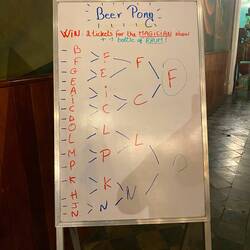 Beer Pong
WIN: 2 tickets for the MAGICIAN show
+ 1 bottle of RHUM!
B
F
G
E
A
I
C
D
O
L
M
P
K
H
J
N
F
E
i
C
L
P
K
N
F
C
L
N
F